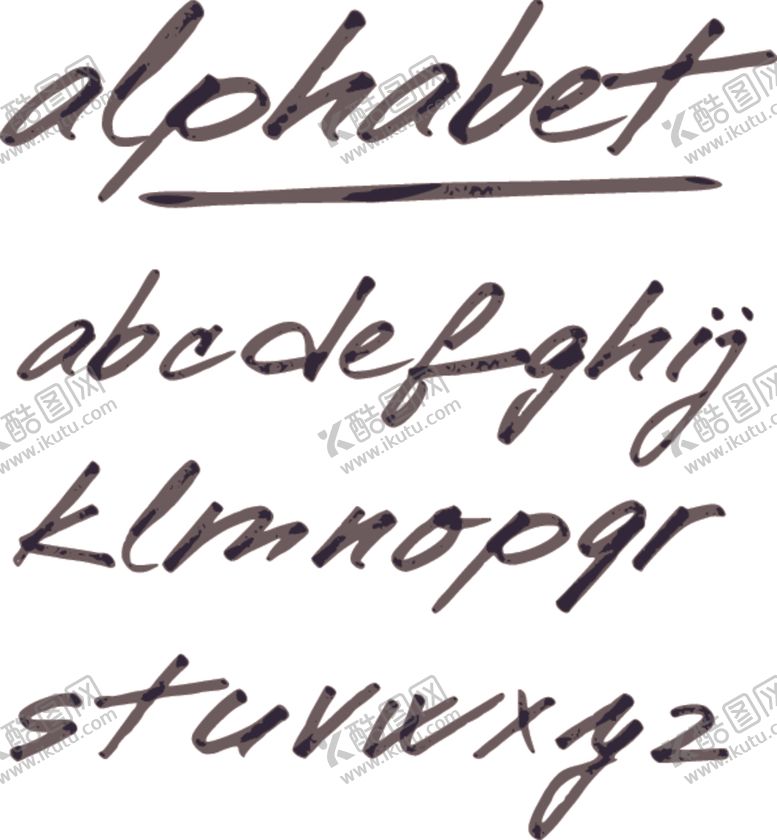 alphabet
abcdefghij
klmnopqr
stuvwxyz
酷图网
www.ikutu.com